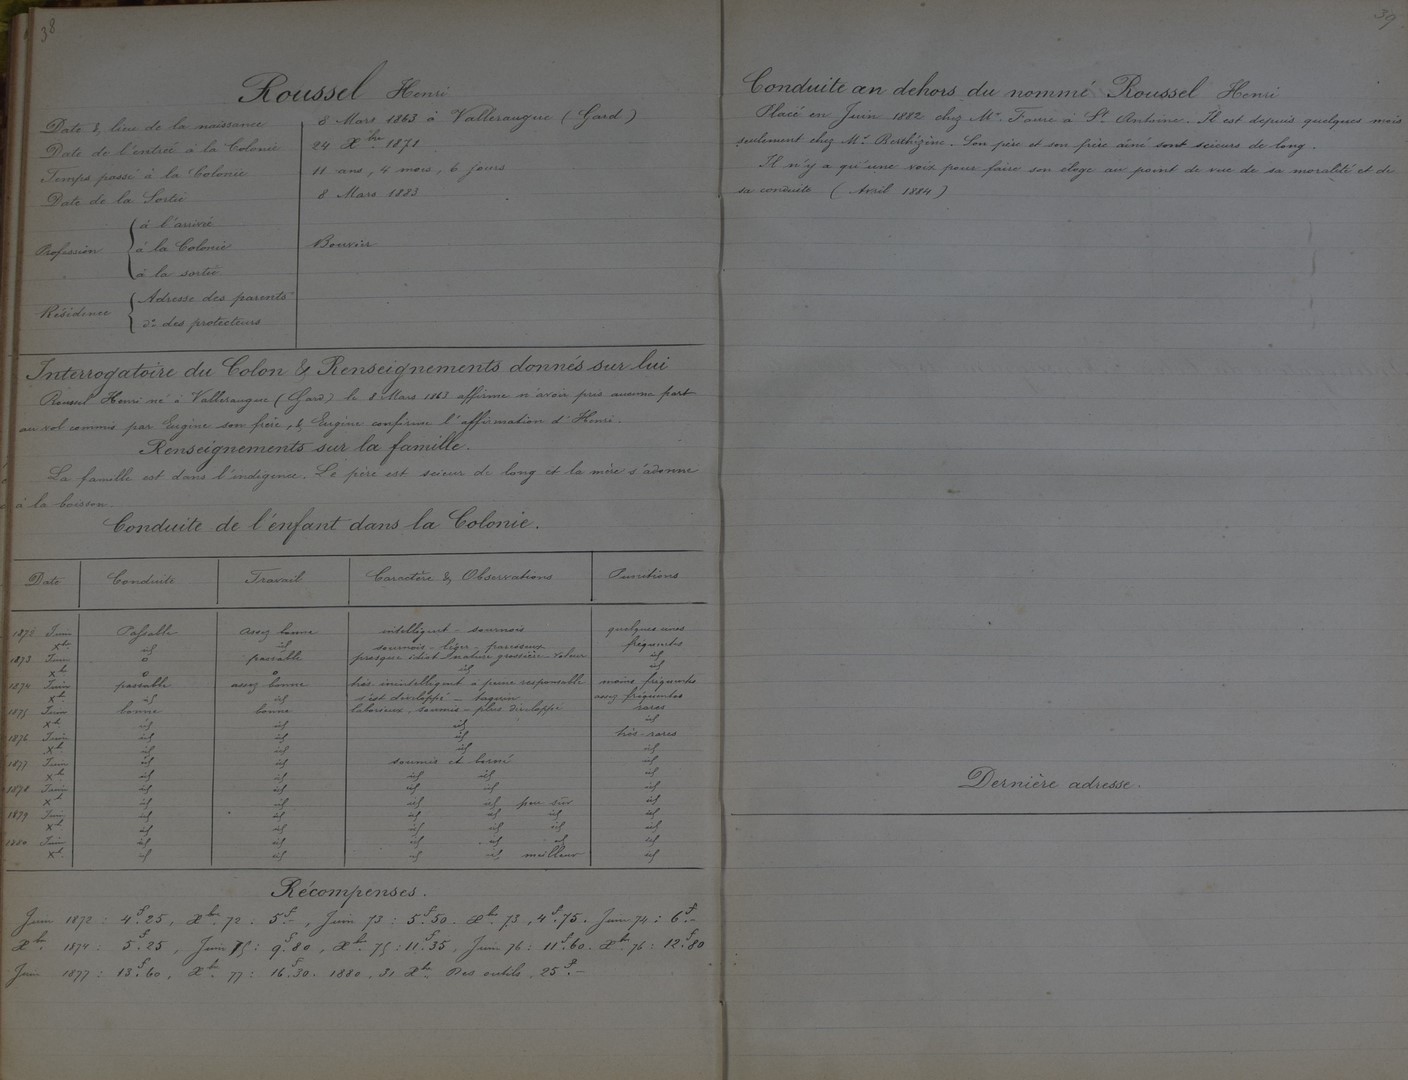 38
Roussel Henri
Date & lieu de la naissance 8 Mars 1863 à Valleraugue (Gard)
Date de l'entrée à la Colonie 24 Xbre 1871
Temps passé à la Colonie 11 ans, 4 mois, 6 jours
Date de la Sortie 8 Mars 1883
Profession
à l'arrivée
à la Colonie Bouvier
à la sortie
Résidence
Adresse des parents
do des protecteurs
Interrogatoire du Colon & Renseignements donnés sur lui
Roussel Henri né à Valleraugue (Gard) le 8 Mars 1863 affirme n'avoir pris aucune part
au vol commis par Eugène son frère, & Eugène confirme l'affirmation d'Henri.
Renseignements sur la famille.
La famille est dans l'indigence. Le père est scieur de long et la mère s'adonne
à la boisson.
Conduite de l'enfant dans la Colonie.
Date Conduite Travail Caractère & Observations Punitions
1872 Juin Passable assez bonne intelligent - sournois quelques unes
Xbre id id sournois - léger - paresseux fréquentes
1873 Juin o passable presque idiot nature grossière - voleur id
Xbre o o id id
1874 Juin passable assez bonne très inintelligent à peine responsable moins fréquentes
Xbre id id s'est développé - taquin assez fréquentes
1875 Juin bonne bonne laborieux, soumis - plus développé rares
Xbre id id id id
1876 Juin id id id très rares
Xbre id id id id
1877 Juin id id soumis et borné id
Xbre id id id id id
1878 Juin id id id id id
Xbre id id id id peu sûr id
1879 Juin id id id id id id
Xbre id id id id id id
1880 Juin id id id id id id
Xbre id id id id meilleur id
Récompenses.
Juin 1872 : 4f.25, Xbre 72 : 5f.-, Juin 73 : 5f.50. Xbre 73, 4f.75. Juin 74 : 6f.-
Xbre 1874 : 5f.25, Juin 75 : 9f.80, Xbre 75 : 11f.35, Juin 76 : 11f.60. Xbre 76 : 12f.80
Juin 1877 : 13f.60, Xbre 77 : 16f.30. 1880, 31 Xbre Des outils, 25f.-
39
Conduite en dehors du nommé Roussel Henri
Placé en Juin 1882 chez Mr. Faure à St Antoine. Il est depuis quelques mois
seulement chez Mr. . Son père et son frère aîné sont scieurs de long.
Il n'y a qu'une voix pour faire son éloge au point de vue de sa moralité et de
sa conduite (Avril 1884)
Dernière adresse.